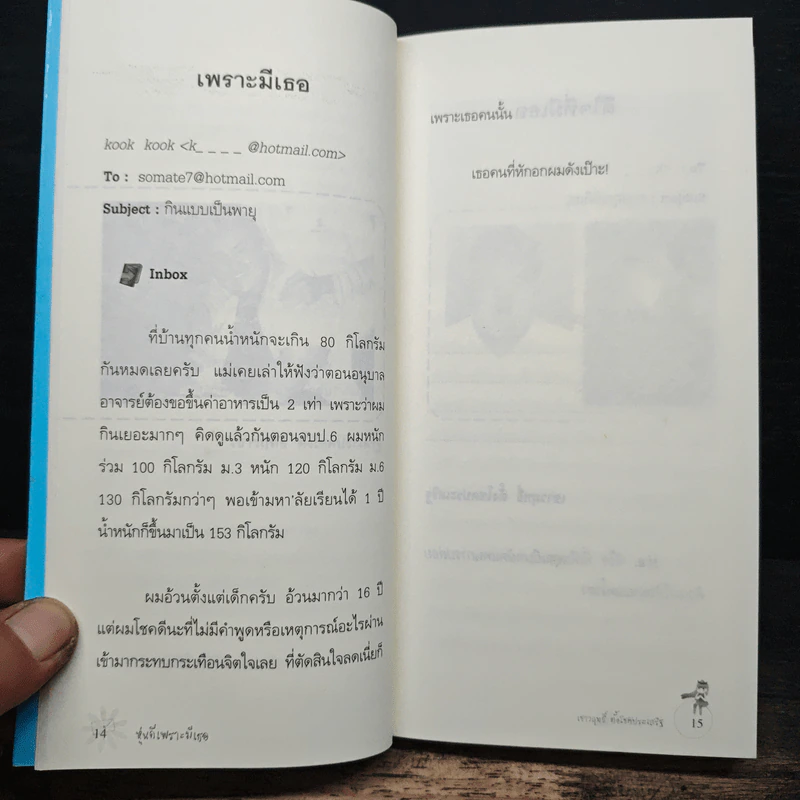 เพราะมีเธอ
kook kook <k_ _ _ _ @hotmail.com>
To : somate7@hotmail.com
Subject : กินแบบเป็นพายุ
Inbox
ที่บ้านทุกคนน้ำหนักจะเกิน 80 กิโลกรัม
กันหมดเลยครับ แม่เคยเล่าให้ฟังว่าตอนอนุบาล
อาจารย์ต้องขอขึ้นค่าอาหารเป็น 2 เท่า เพราะว่าผม
กินเยอะมากๆ คิดดูแล้วกันตอนจบป.6 ผมหนัก
ร่วม 100 กิโลกรัม ม.3 หนัก 120 กิโลกรัม ม.6
130 กิโลกรัมกว่าๆ พอเข้ามหา'ลัยเรียนได้ 1 ปี
น้ำหนักก็ขึ้นมาเป็น 153 กิโลกรัม
ผมอ้วนตั้งแต่เด็กครับ อ้วนมากว่า 16 ปี
แต่ผมโชคดีนะที่ไม่มีคำพูดหรือเหตุการณ์อะไรผ่าน
เข้ามากระทบกระเทือนจิตใจเลย ที่ตัดสินใจลดเนี่ยก็
14 หุ่นดีเพราะมีเธอ
เพราะเธอคนนั้น
เธอคนที่หักอกผมดังเป๊าะ!
เชาวฤทธิ์ ตั้งโชคประเสริฐ 15